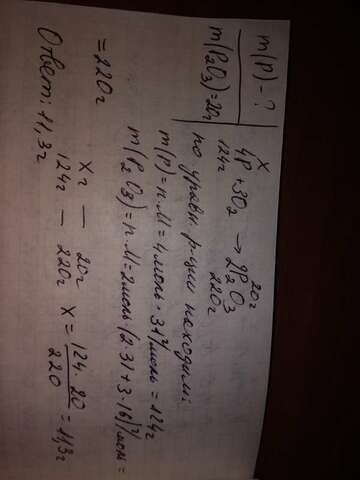 m(P) - ?
m(P₂O₃) = 20г
x 20г
4P + 3O₂ → 2P₂O₃
124г 220г
по уравн. р-ции находим:
m(P) = n·M = 4моль · 31г/моль = 124г
m(P₂O₃) = n·M = 2моль · (2·31 + 3·16)г/моль =
= 220г
xг — 20г
124г — 220г x = 124·20/220 = 11,3г
Ответ: 11,3г